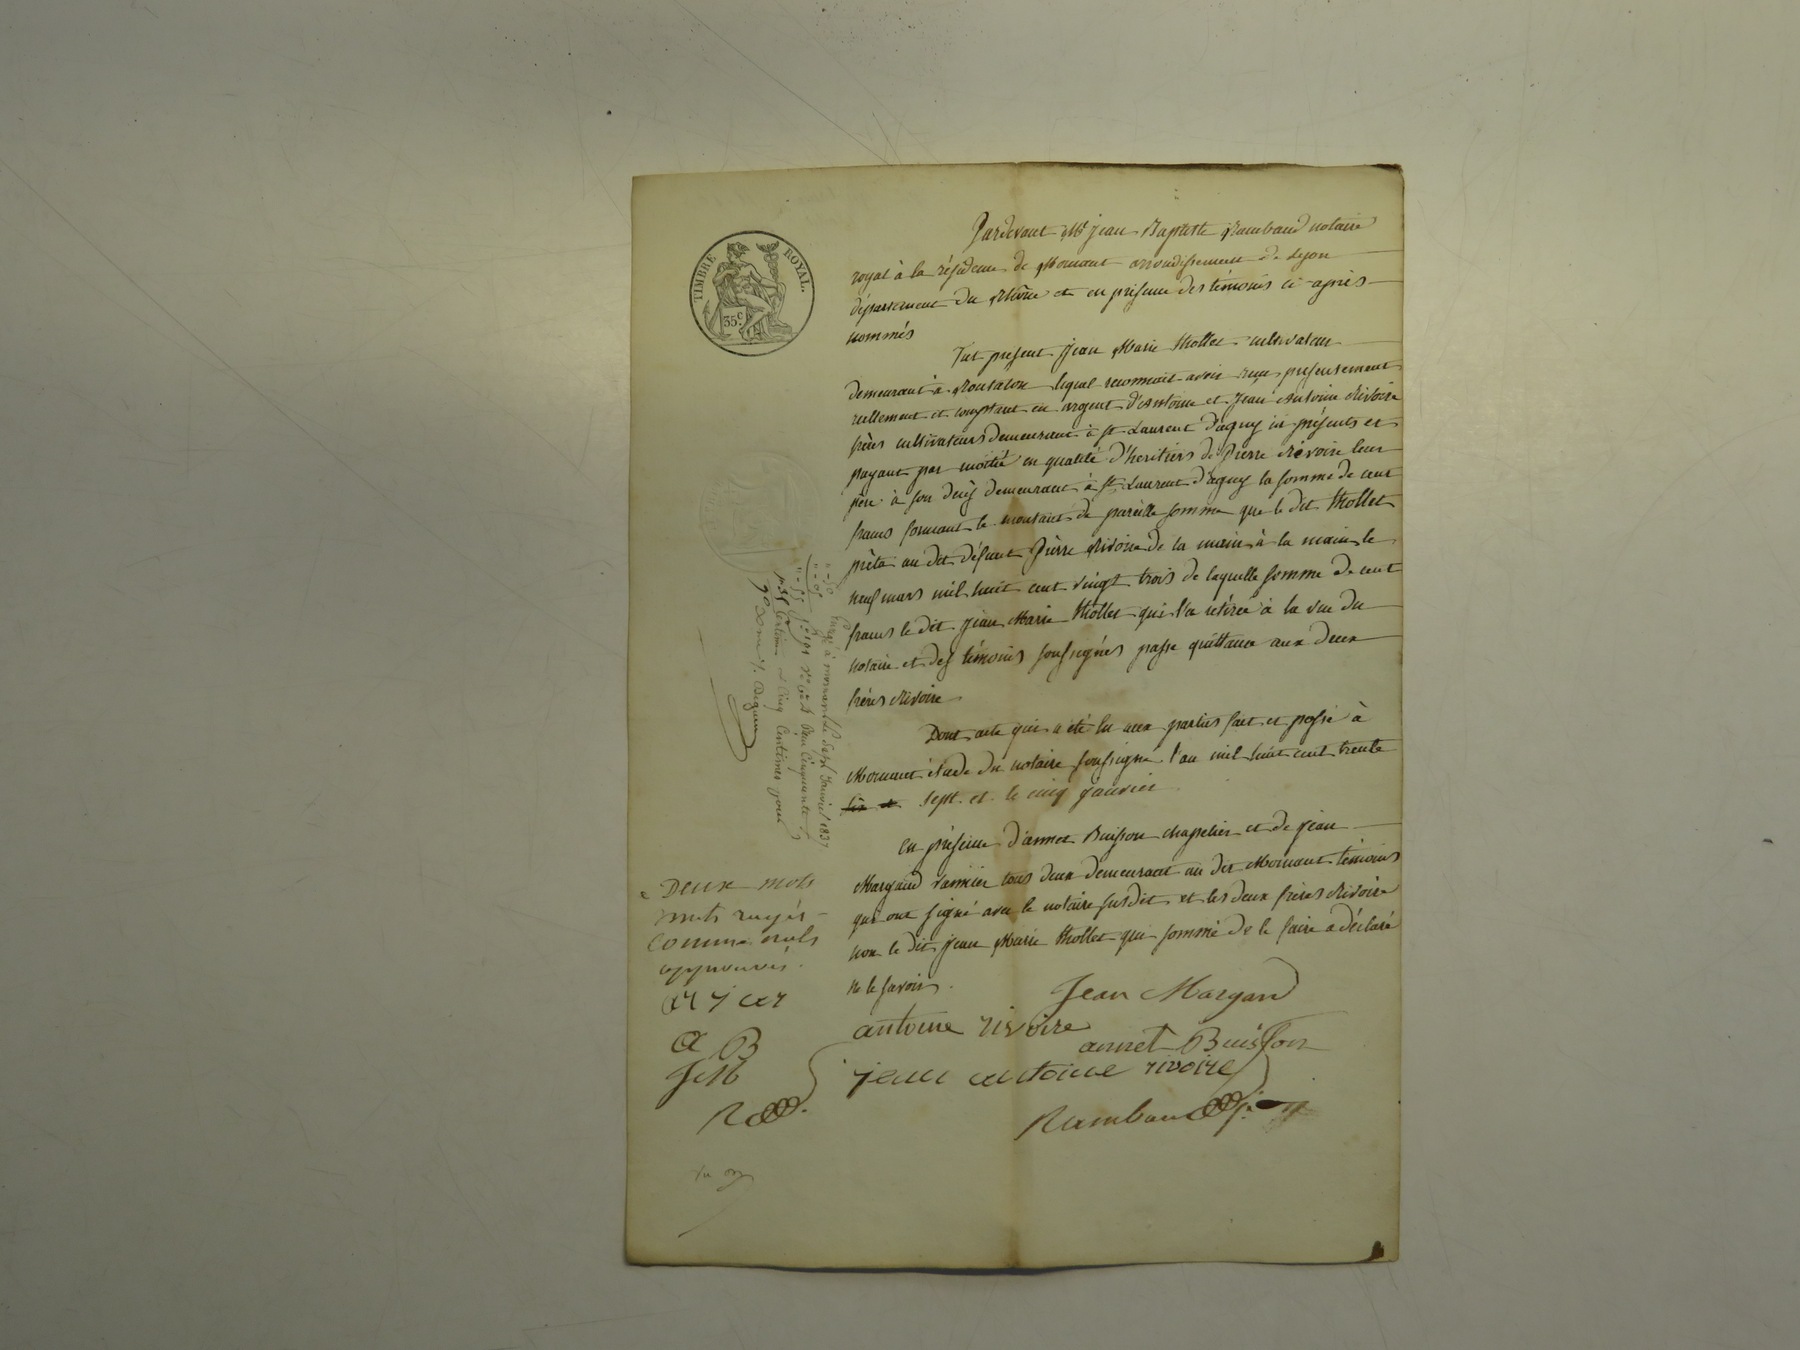 TIMBRE ROYAL.
35c.
Pardevant Me Jean Baptiste Rambaud notaire
royal à la résidence de Mornant arrondissement de Lyon
département du Rhône et en présence des témoins ci-après
nommés
Fut présent Jean Marie Thollet cultivateur
demeurant à Rontalon lequel reconnait avoir reçu présentement
réellement et comptant en argent d'Antoine et Jean Antoine Rivoire
frères cultivateurs demeurant à St Laurent d'agny ici présents et
payant par moitié en qualité d'héritiers de Pierre Rivoire leur
père à son décès demeurant à St Laurent d'agny la somme de cent
francs formant le montant de pareille somme que le dit Thollet
prêta au dit défunt Pierre Rivoire de la main à la main le
neuf mars mil huit cent vingt trois de laquelle somme de cent
francs le dit Jean Marie Thollet qui l'a retirée à la vue du
notaire et des témoins soussignés passe quittance aux deux
frères Rivoire
Dont acte qui a été lu aux parties fait et passé à
Mornant étude du notaire soussigné l'an mil huit cent trente
six et sept et le cinq janvier
En présence d'annet Buisson chapelier et de Jean
Margand vannier tous deux demeurant au dit Mornant témoins
qui ont signé avec le notaire susdit et les deux frères Rivoire
non le dit Jean Marie Thollet qui sommé de le faire a déclaré
ne le savoir.
Jean Margand
antoine rivoire
annet Buisson
jean antoine rivoire
Rambaud
Enregé à mornant le sept Janvier 1837
Reçu Cinquante
Centimes et Cinq Centimes pour
Deux mots
mots rayés
comme nuls
approuvés.
ar j ar
a B
JM
R